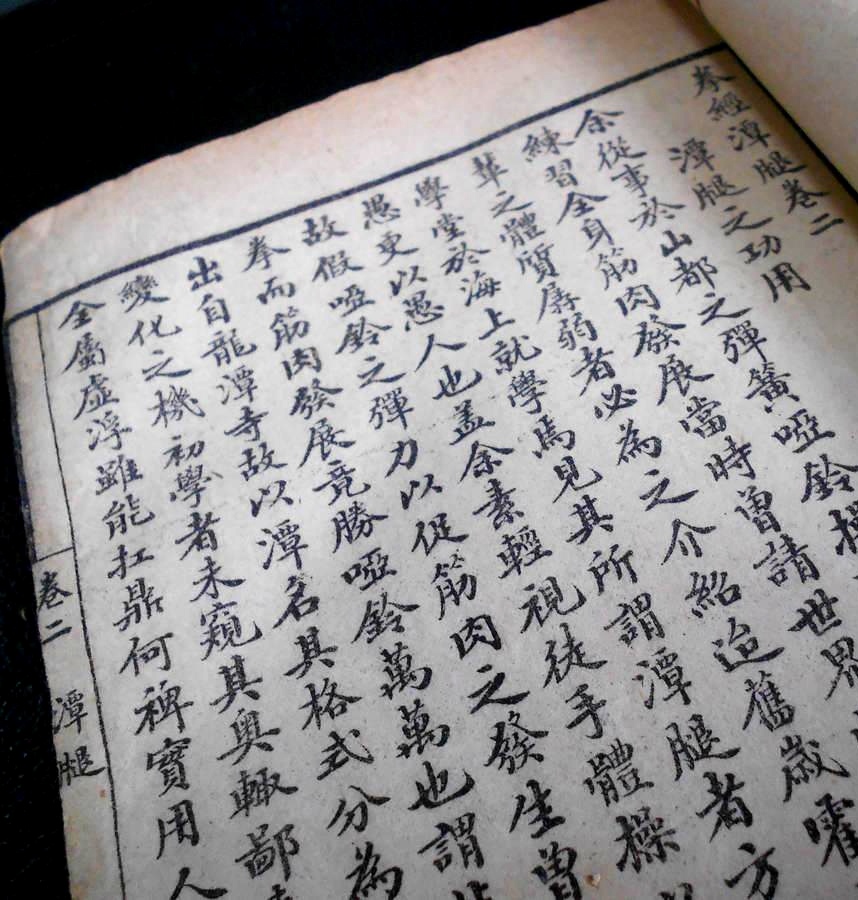 拳經潭腿卷二
潭腿之功用
余從事於山都之彈簧啞鈴操
練習全身筋肉發展當時曾請世界
輩之體質孱弱者必為之介紹迨舊歲霍
學堂於海上就學焉見其所謂潭腿者方
愚更以愚人也盖余素輕視徒手體操
故假啞鈴之彈力以促筋肉之發生曾
拳而筋肉發展竟勝啞鈴萬萬也謂
出自龍潭寺故以潭名其格式分為
變化之機初學者未窺其奧輒鄙
全屬虛浮雖能扛鼎何裨實用人
卷二 潭腿